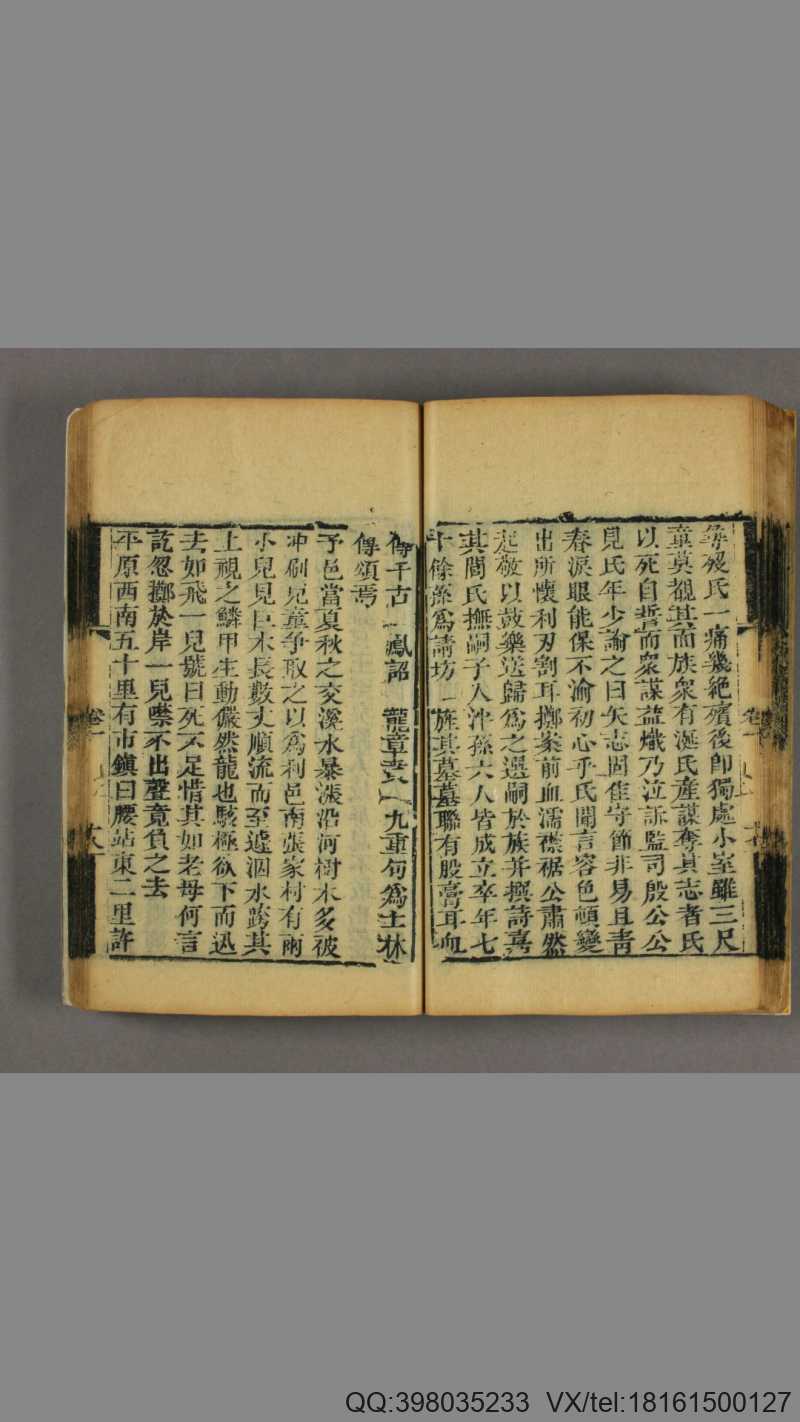 歿氏一痛幾絕殯後即獨處小室雖三尺
童莫覩其面族衆有涎氏產謀奪其志者氏
以死自誓而衆謀益熾乃泣訴監司殷公公
見氏年少諭之曰矢志固佳守節非易且靑
春淚眼能保不渝初心乎氏聞言容色頓變
出所懷利刃割耳擲案前血濡襟裾公肅然
起敬以鼓樂送歸爲之選嗣於族并撰詩嘉
其閭氏撫嗣子入泮孫六人皆成立卒年七
十餘孫爲請坊旌其墓墓聯有股膏耳血
傳千古鳳詔龍章袞九重句爲士林
傳頌焉
予邑當夏秋之交溪水暴漲沿河樹木多被
冲刷兒童爭取之以爲利邑南張家村有兩
小兒見巨木長數丈順流而至遽泅水跨其
上視之鱗甲生動儼然龍也駭極欲下而迅
去如飛一兒號曰死不足惜其如老母何言
訖忽擲於岸一兒噤不出聲竟負之去
平原西南五十里有市鎭曰腰站東二里許
卷一
卷一
QQ:398035233 VX/tel:18161500127